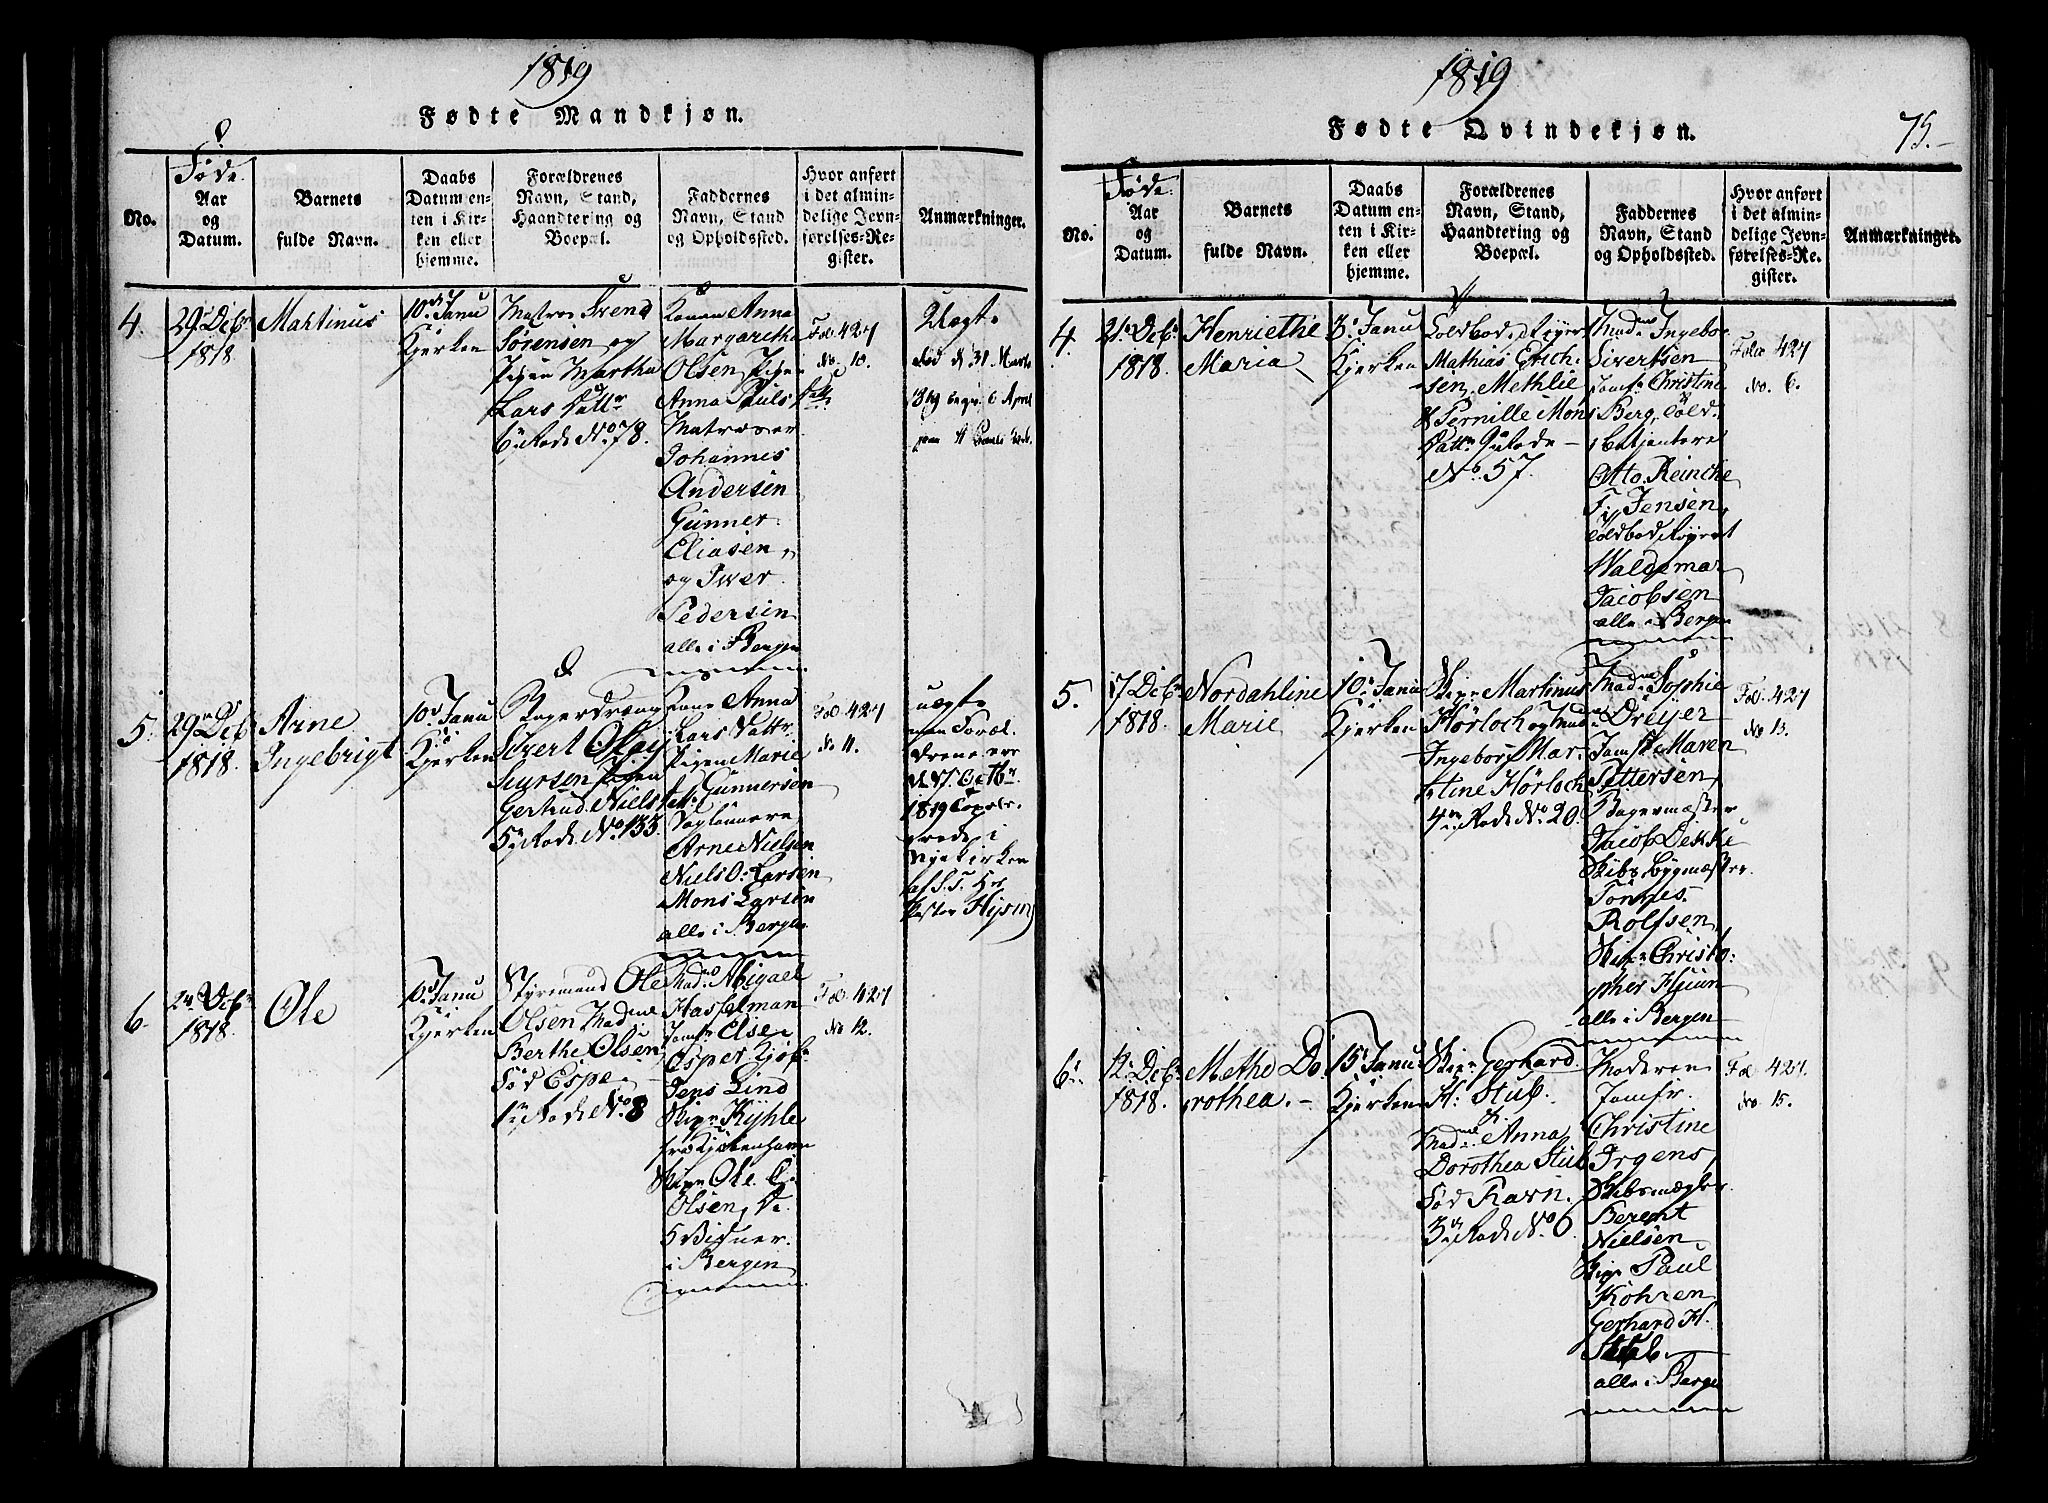 1819
Fødte Mandkjøn.
No.
Føde
Aar
og
Datum.
Barnets
fulde Navn.
Daabs
Datum en-
ten i Kir-
ken eller
hjemme.
Forældrenes
Navn, Stand,
Haandtering og
Boepæl.
Faddernes
Navn, Stand
og Opholdssted.
Hvor anført
i det almin-
delige Jevn-
førelses-Re-
gister.
Anmærkninger.
4.
29 Decbr
1818.
Martinus
10 Janu
Kjerken
Matros Svend
Sørensen og
Pigen Martha
Lars Dattr
6te Rode No. 78.
Konen Anna
Margaretha
Olsen, Pigen
Anna Pauls
Matroser
Johannes
Andersen
Gunner
Eliasen,
og Iwer
Pedersen
alle i Bergen
Fol. 427
No. 10.
Uægte
død d 31 Marts
1819 begr. 6 April
5.
29 Decbr
1818.
Arne
Ingebrigt
10 Janu
Kjerken
Bagerdreng
Sivert Olay
Siursen Pigen
Gertrud Niels
5te Rode No. 133.
Kone Anna
Lars Dattr
Pigen Marie
Gunnersen
Daglønnere
Arne Nielsen
Niels O: Larsen
Mons Larsen
alle i Bergen
Fol. 427
No 11.
uægte
men Foræl-
drene ere
1819 Copule-
rede i
Nye Kirken
af S. T. Hr
Pastor
6.
24 Decbr
1818.
Ole
10 Janu
Kjerken
Styrmand Ole
Olsen Madme
Berthe Olsen
Fød Espe
1te Rode No. 8
Mad. Abigael
Hasselman
Jomfr Else
Esper Kjøbm
Jens Lind
Skipr Kyhle
fra Kjøbenhavn
Skipr Ole
Olsen,
i Bergen
Fol. 427
No 12.
1819
Fødte Qvindekjøn.
75.
No.
Føde
Aar
og
Datum.
Barnets
fulde Navn.
Daabs
Datum en-
ten i Kir-
ken eller
hjemme.
Forældrenes
Navn, Stand,
Haandtering og
Boepæl.
Faddernes
Navn, Stand
og Opholdssted.
Hvor anført
i det almin-
delige Jevn-
førelses-Re-
gister.
Anmærkninger.
4.
21 Decbr
1818.
Henriethe
Maria
3 Janu
Kjerken
Toldbod Røyert
Mathias Erich-
sen, Methlie
& Pernille Mons
Dattr 9de Rode
No. 57.
Madme Ingebor
Sivertsen
Jomfr Christine
Berg, Told-
betjentere
Otto Reincke
F. Jensen,
Toldbod Røyert
Waldemar
Jacobsen
alle i Bergen
Folio 427
No. 6.
5.
17 Decbr
1818.
Nordahline
Marie
10 Janu
Kjerken
Skipr Martinus
Hörloch og Mad
Ingeborg Mar-
tine Hörloch
4de Rode No. 20.
Madme Sophie
Dreyer
Jomfr Maren
Pettersen,
Bagermester
Jacob Dekke
Skibs bygmester
Tönnes
Rolfsen,
Skipr Christo:
pher Huun
alle i Bergen
Fol. 427
No 13.
6.
12 Decbr
1818.
Methe Do
rothea.
15 Janu
Kjerken
Skipr Gerhard
H: Stub.
Madme Anna
Dorothea Stub
Fød Ravn.
3de Rode No. 6
Moderen
Jomfr.
Christine
Irgens,
Skibsmægler
Berent
Nielsen
Skipr Paul
Kohren
Gerhard H.
Stub
alle i Bergen
Fol. 427.
No 15.